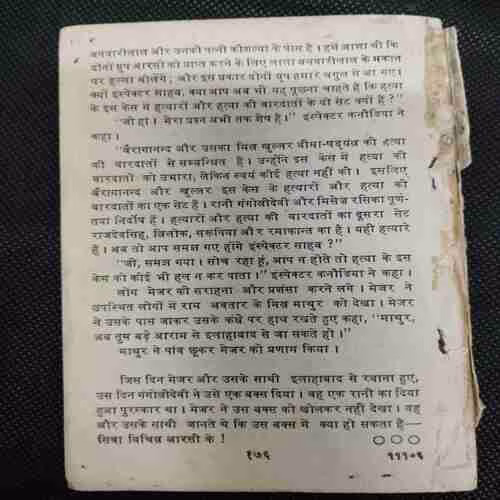 बनवारीलाल और उनकी पत्नी कौशल्या के पास है। हमें आशा थी कि
दोनों ग्रुप आरसी को प्राप्त करने के लिए लाला बनवारीलाल के मकान
पर हल्ला बोलेंगे; और इस प्रकार दोनों ग्रुप हमारे चंगुल में आ गए।
क्यों इंस्पेक्टर साहब, क्या आप अब भी यह पूछना चाहते हैं कि हत्या
के इस केस में हत्यारों और हत्या की वारदातों के दो सेट क्यों हैं?"
"जी हां। मेरा प्रश्न अभी तक शेष है।" इंस्पेक्टर कनौडिया ने
कहा।
"बैरागानन्द और उसका मित्र खुल्लर बीमा-षड्यंत्र की हत्या
की वारदातों से सम्बन्धित हैं। उन्होंने इस केस में हत्या की
वारदातों को उभारा, लेकिन स्वयं कोई हत्या नहीं की। इसलिए
बैरागानन्द और खुल्लर इस केस के हत्यारों और हत्या की
वारदातों का एक सेट हैं। रानी गंगोत्रीदेवी और मिसेज रसिका पूर्ण-
तया निर्दोष हैं। हत्यारों और हत्या की वारदातों का दूसरा सेट
राजदेवसिंह, त्रिलोक, और रमाकान्त का है। यही हत्यारे
हैं। अब तो आप समझ गए होंगे इंस्पेक्टर साहब?"
"जी, समझ गया। सोच रहा हूं, आप न होते तो हत्या के इस
केस को कोई भी हल न कर पाता।" इंस्पेक्टर कनौडिया ने कहा।
लोग मेजर की सराहना और प्रशंसा करने लगे। मेजर ने
उपस्थित लोगों में राम अवतार के मित्र माथुर को देखा। मेजर
ने उसके पास जाकर उसके कंधे पर हाथ रखते हुए कहा, "माथुर,
अब तुम बड़े आराम से इलाहाबाद से जा सकते हो।"
माथुर ने पांव छूकर मेजर को प्रणाम किया।
जिस दिन मेजर और उसके साथी इलाहाबाद से रवाना हुए,
उस दिन गंगोत्रीदेवी ने उसे एक बक्स दिया। वह एक रानी का दिया
हुआ पुरस्कार था। मेजर ने उस बक्स को खोलकर नहीं देखा। वह
और उसके साथी जानते थे कि उस बक्स में क्या हो सकता है—
सिवा विचित्र आरसी के!
१७६